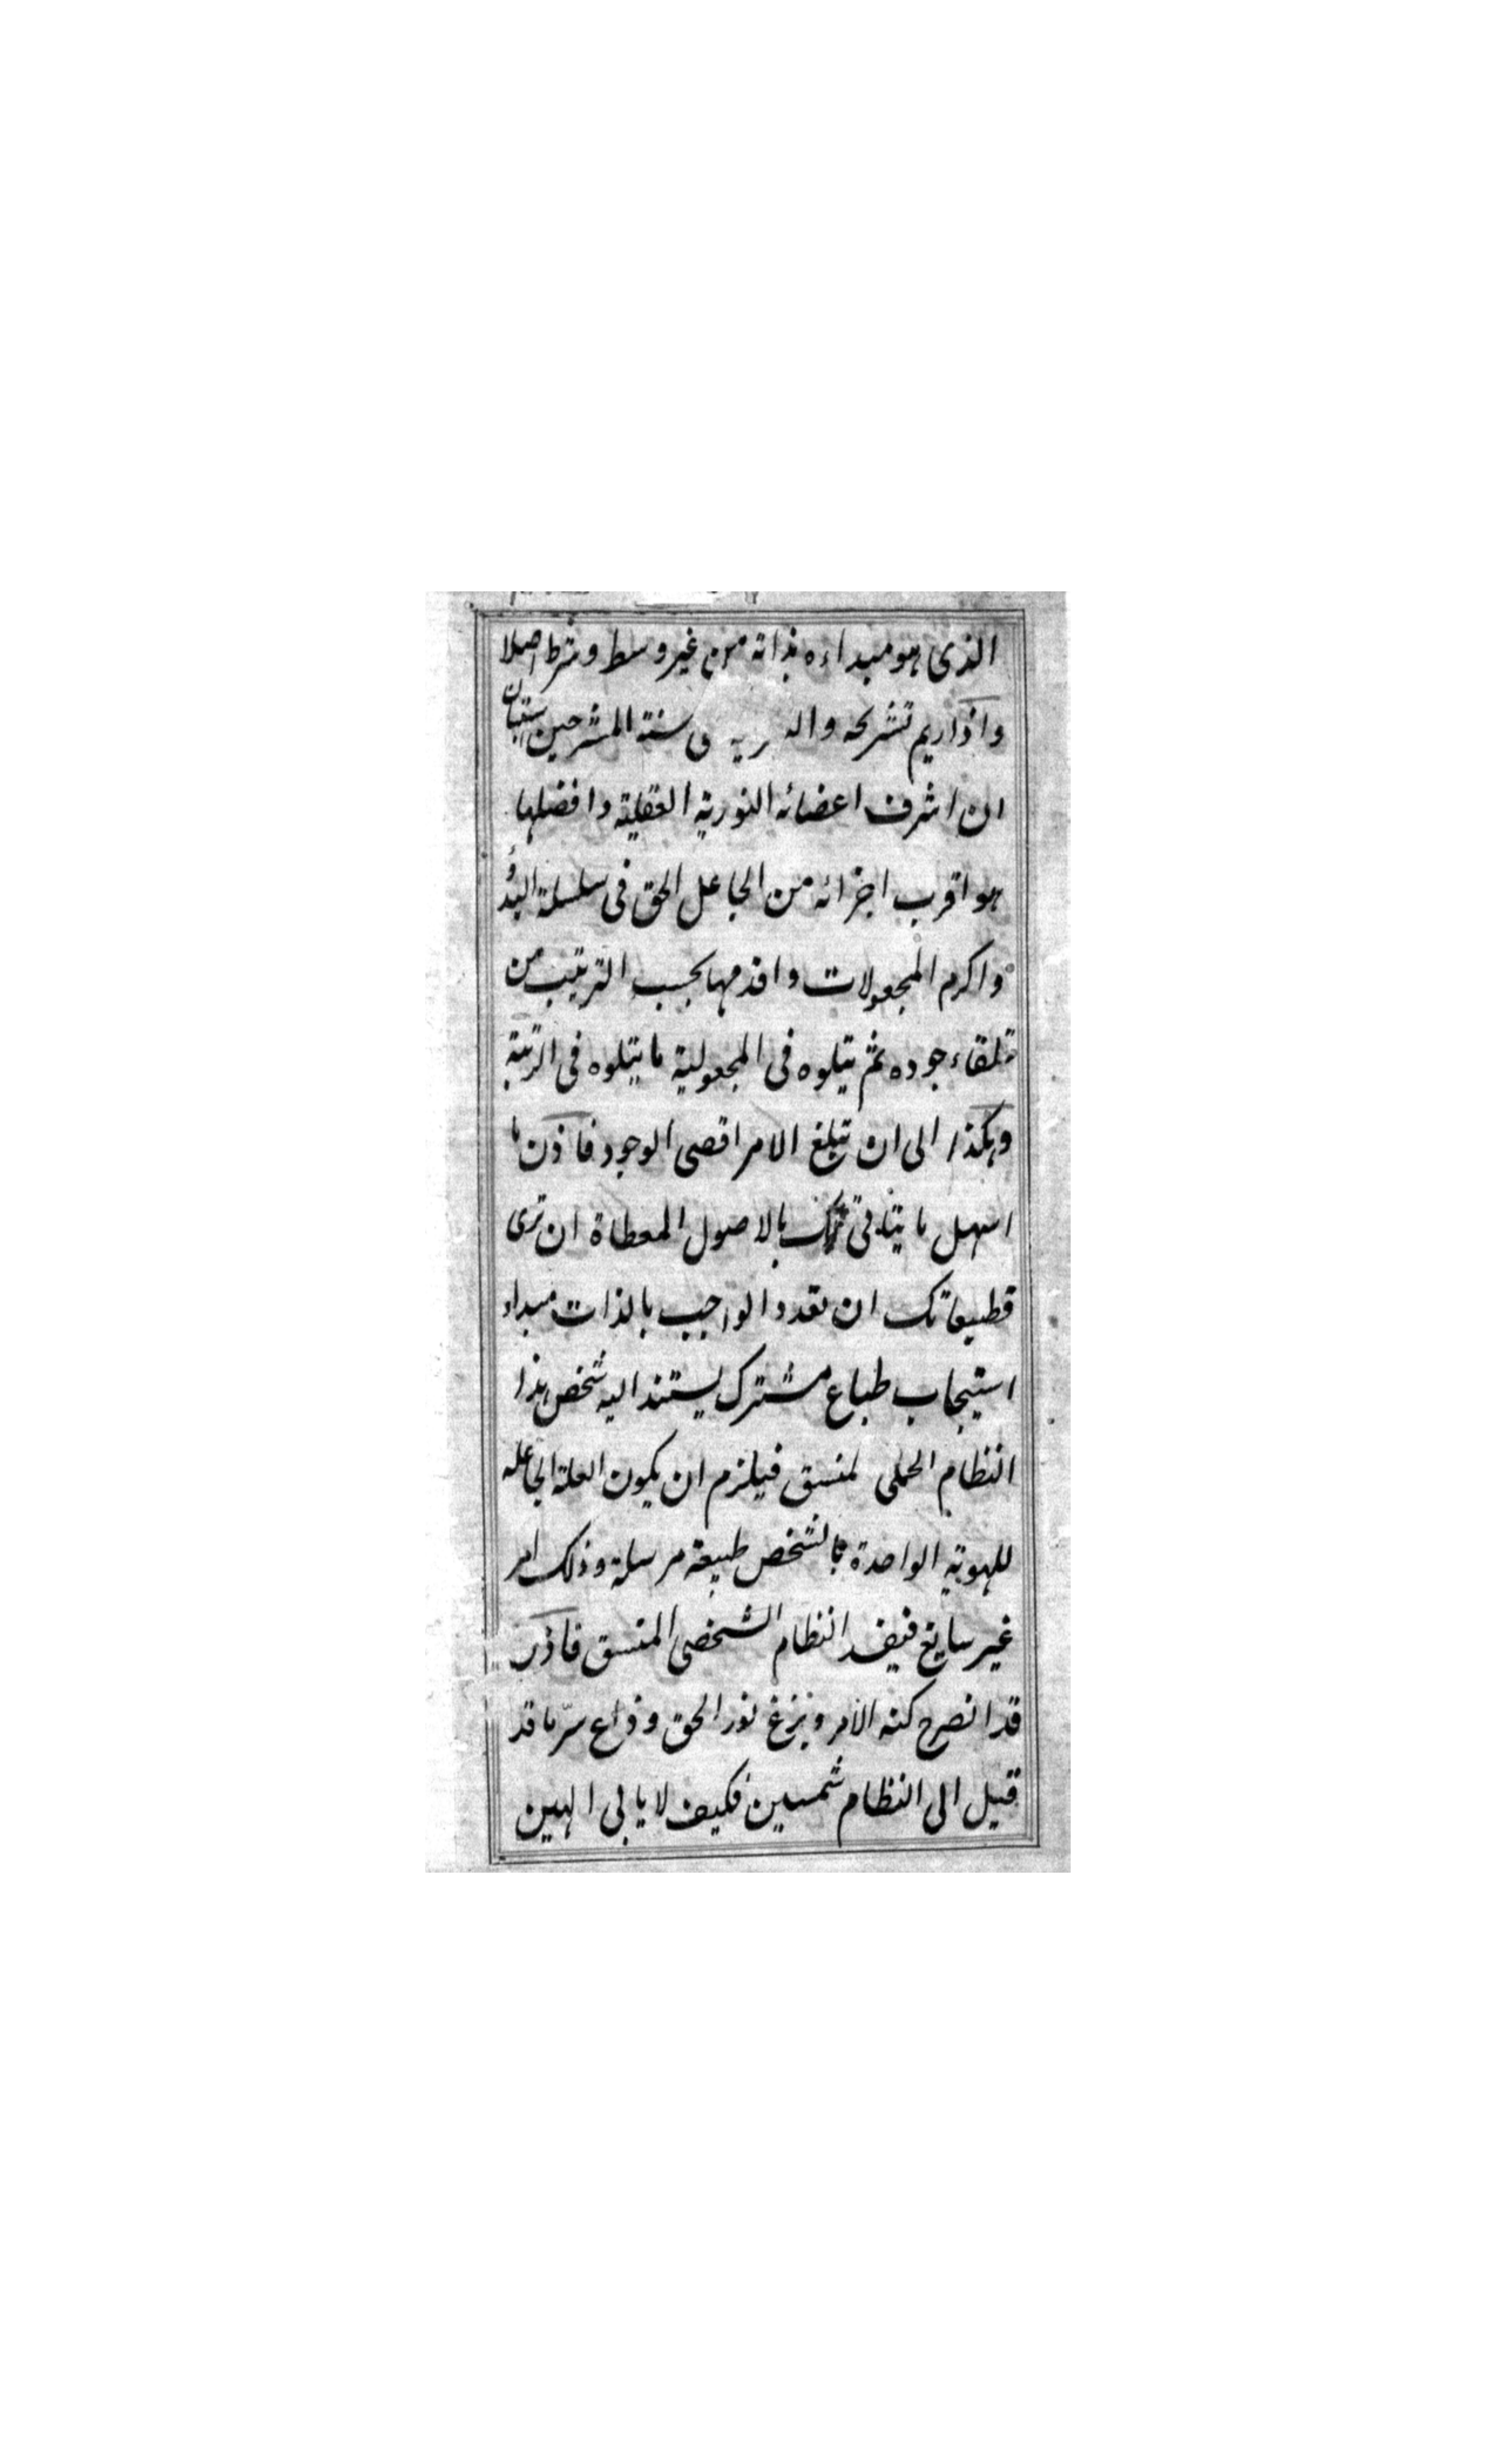 الذى هو مبداءه بذاته من غير وسط وشرط اصلا
واذا ريم تشريحه فى سنة المشرحين استبان
ان اشرف اعضائه النورية العقلية وافضلها
هو اقرب اجزائه من الجاعل الحق فى سلسلة البدؤ
واكرم المجعولات واقدمها بحسب الترتيب من
تلقاء جوده ثم يتلوه فى المجعولية ما يتلوه فى الرتبة
وهكذا الى ان تبلغ الامر اقصى الوجود فاذن ما
اسهل ما يتاتى لك بالاصول المعطاة ان ترى
قطيعاتك ان تعدد الواجب بالذات مبداء
استيجاب طباع مشترك يستند اليه شخص هذا
النظام الجملى لمنسق فيلزم ان يكون العلة الجاعله
للهوية الواحدة بالشخص طبيعة مرسلة وذلك امر
غير سايغ النظام الشخصى المنسق فاذن
قد انصرح كنه الامر وبزغ نور الحق وذاع سرّ ما قد
قيل الى النظام شمسين فكيف لا يابى الهين